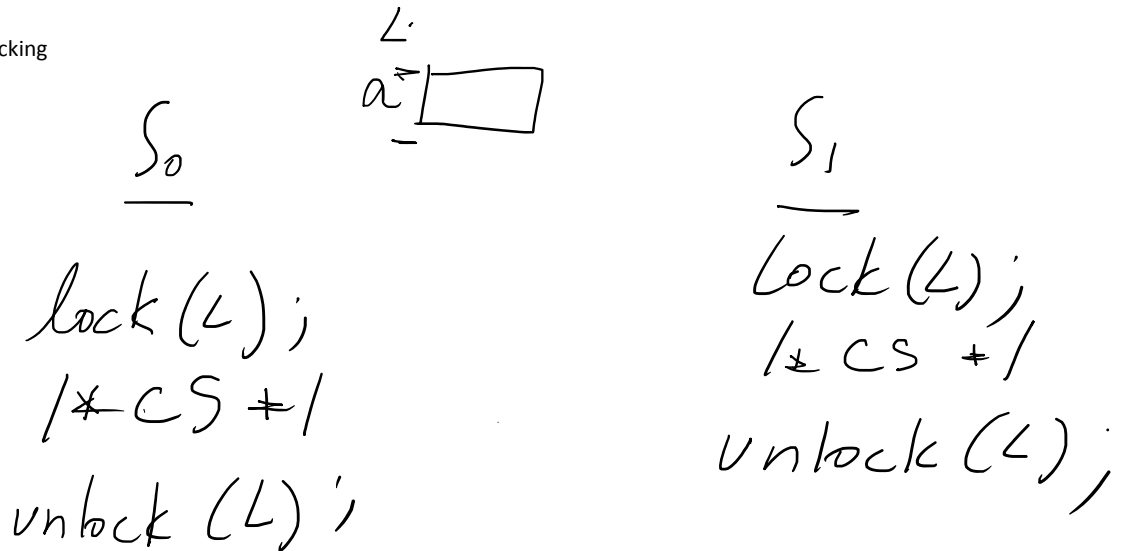 cking
L
a
S0
S1
lock(L);
/* CS */
unlock(L);
lock(L);
/* CS */
unlock(L);